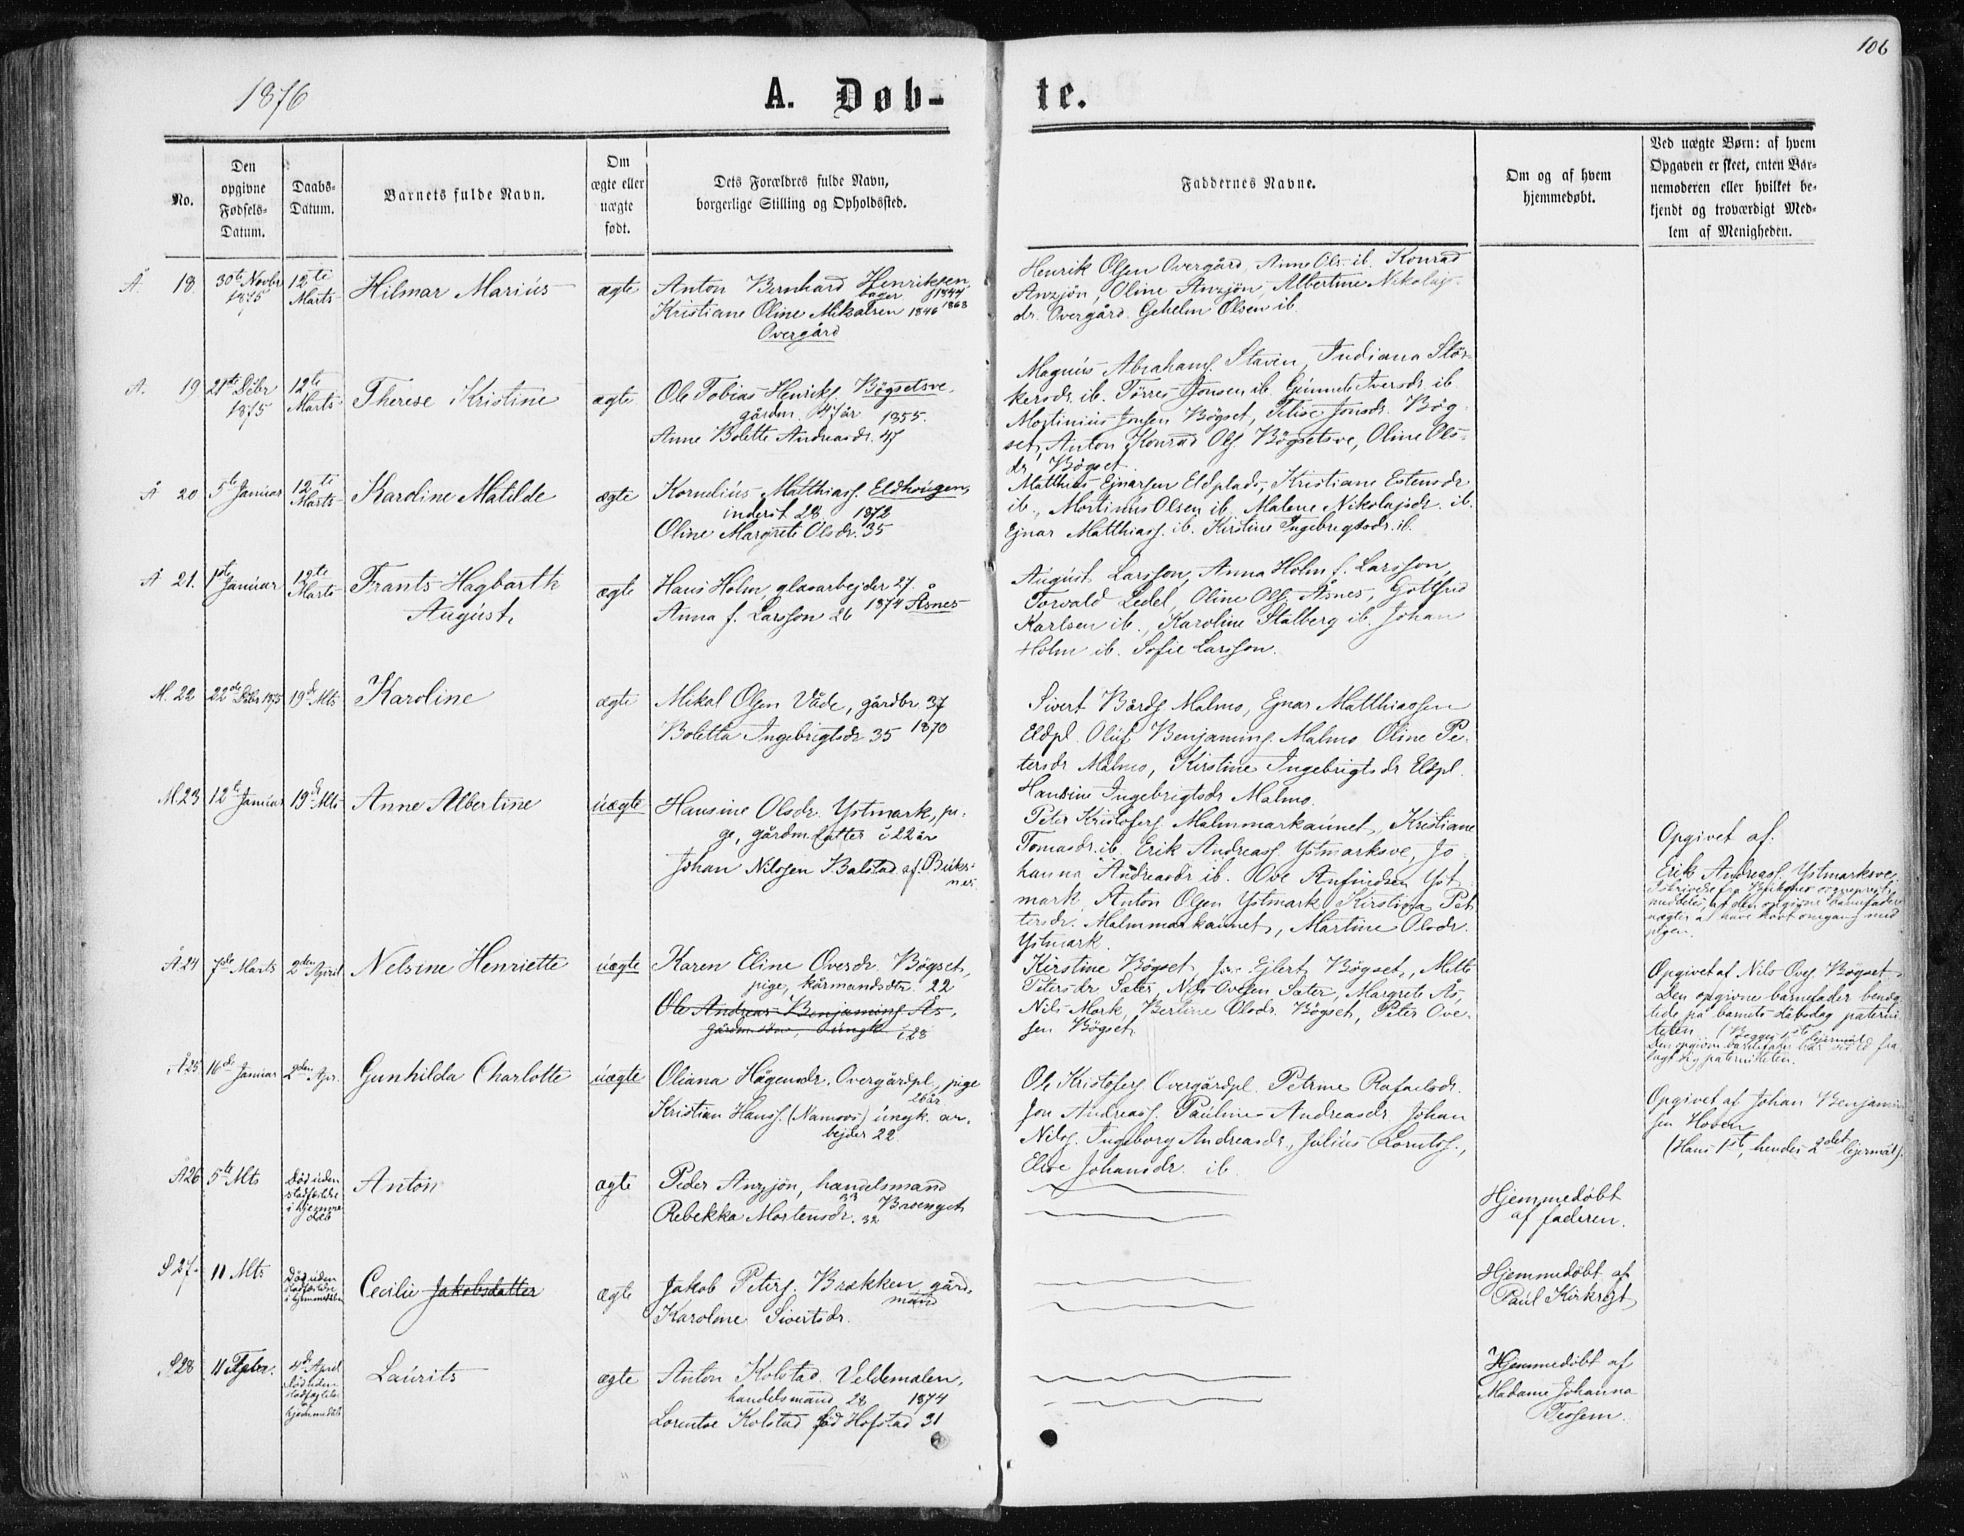 106
1876
A. Døb-
te.
No.
Den opgivne Fødsels-Datum.
Daabs-Datum.
Barnets fulde Navn.
Om ægte eller uægte født.
Dets Forældres fulde Navn, borgerlige Stilling og Opholdssted.
Faddernes Navne.
Om og af hvem hjemmedøbt.
Ved uægte Børn: af hvem Opgaven er skeet, enten Barnemoderen eller hvilket bekjendt og troværdigt Medlem af Menigheden.
Å. 18. 30te Novbr 1875 12te Marts Hilmar Marius ægte
Anton Bernhard Henriksen
bager 1844
Kristiane Oline Mikalsen 1846 1868
Overgård
Henrik Olsen Overgård, Anne Ols. ib. Konrad
Anzjön, Oline Anzjön, Albertine Nikolajs-
dr. Overgård. Gehelm Olsen ib.
A. 19 21de Dcbr 1875 12te Marts Therese Kristine ægte
Ole Tobias Henriks. Bögsetsve.
gården. 47 år 1855.
Anne Bolette Andreasdr. 47
Magnus Abrahams. Staven, Indiana Stör-
kersdr. ib. Törres Jonsen ib. Gunnele Iversdr. ib.
Mortinius Jonsen Bögset, Jonsdr. Bög-
set, Anton Konrad Ols. Bögsetsve, Oline Ols-
dr. Bögset.
Å 20 5te Januar 12te Marts Karoline Matilde ægte
Kornelius Matthiass. Eldhaugen,
inderst 28 1872
Oline Margrete Olsdr. 35
Matthias Ejnarsen Eldplads, Kristiane Estensdr
ib., Mortinus Olsen ib. Malene Nikolajsdr. ib.
Ejnar Matthiass. ib. Kirstine Ingebrigtsdr. ib.
Å 21. 1ste Januar 12te Marts Frants Hagbarth
August. ægte
Hans Holm, glasarbejder 27.
Anna f. Larsson 26 1874 Åsnes
August Larsson, Anna Holm f. Larsson,
Torvald Ledel, Oline Ols. Åsnes, Gottfrid
Karlsen ib., Karoline Stalberg ib. Johan
Holm ib. Sofie Larsson.
M. 22 22de Dcbr 1875 19de Mts Karoline ægte
Mikal Olsen Våde, gårdbr. 37
Boletta Ingebrigtsdr 35 1870
Sivert Bårds. Malmo, Ejnar Matthiassen
Eldpl. Oluf Benjamins. Malmo Oline Pe-
tersdr Malmo, Kirstine Ingebrigtsdr Eldpl.
Hansine Ingebrigtsdr Malmo.
M. 23 12te Januar 19de Mts Anne Albertine uægte
Hansine Olsdr. Ystmark, pi-
ge, gårdm. datter 22 år
Johan Nilssen Balstad af Buks-
nes.
Peter Kristofers. Malmmarkaunet, Kristiane
Tomasdr. ib. Erik Andreass. Ystmarksve, Jo-
hanna Andreasdr ib. Ove Anfindsen Yst-
mark, Anton Olsen Ystmark Kirstina Pet-
tersdr. Malmmarkaunet, Martine Olsdr.
Ystmark.
Opgivet af:
Erik Andreass. Ystmarksve.
meddeles, at den opgivne barnefader
nægter at have havt omgang med
pigen.
Å 24 7de Marts 2den April Nelsine Henriette uægte
Karen Eline Oversdr. Bögset,
pige, kårmandsdtr. 22
Ole Andreas Benjamins. Ås,
gårdm. sön, ungk. 28
Kirstine Bögset, Ejlert Bögset, Mette
Petersdr Sæter, Nils Ovesen Sæter, Margrete Ås,
Nils Mork, Bertine Olsdr. Bögset, Peter Ove-
sen Bögset
Opgivet af Nils Oves. Bögset.
Den opgivne barnefader benæg-
tede på barnets dåbsdag paterni-
teten (Begges 1ste lejermål)
Den opgivne barnefader har ved ed fra-
lagt sig paterniteten.
Å 25 16de Januar 2den Apr. Gunhilda Charlotte uægte
Oliana Hågensdr. Overgårdpl, pige
26 år
Kristian Hanss. (Namsos) ungk. ar-
bejder 22.
Ole Kristofers. Overgårdpl. Petrine Rafaelsdr.
Jon Andreass. Pauline Andreasdr Johan
Nils. Ingeborg Andreasdr., Julius Lornts.,
Else Johansdr. ib.
Opgivet af Johan Benjamin-
sen Hoven
(Hans 1ste, hendes 2det lejermål).
Å 26 5te Mts Död uden stadfæstelse i hjemmedåb Anton ægte
Peder Anzjön, handelsmand
33 Brænget
Rebekka Mortensdr. 32
Hjemmedöbt
af faderen.
S 27. 11 Mts Död uden stadfæstelse i hjemmedåben Cecilie Jakobsdatter ægte
Jakob Peters. Brækken, gård-
mand
Karoline Sivertsdr.
Hjemmedöbt af
Paul Kirkrejt
S 28 11 Febr. 4de April Död uden stadfæstelse af hjemmedåb Laurits ægte
Anton Kolstad. Veldemalen,
handelsmand 28 1874
Lorentse Kolstad föd Hofstad 31
Hjemmedöbt af
Madame Johanna
Tessem.